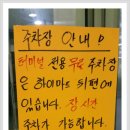 주차장 안내
터미널 전용 무료 주차장
은 하이마트 뒤편에
있습니다. 잠시
주차가 가능합니다.